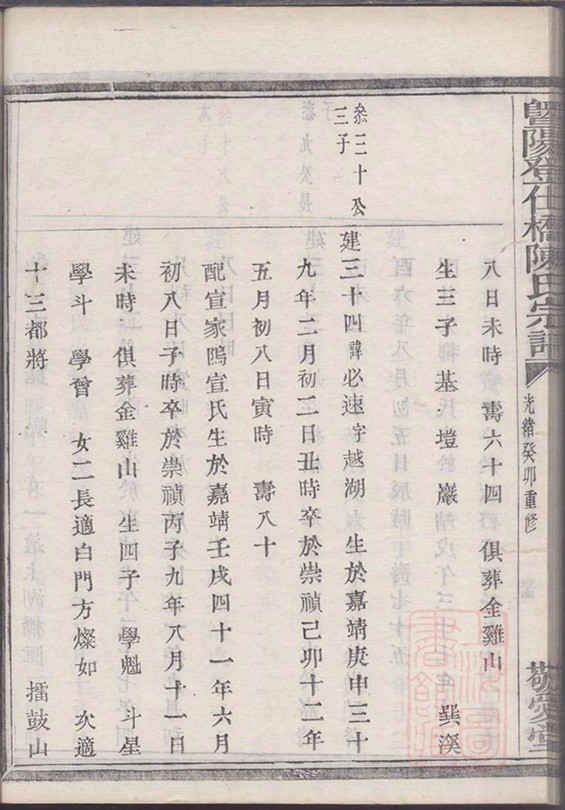 暨陽登仕橋陳氏宗譜
光緒癸卯重修
敬愛堂
八日未時壽六十四　俱葬金雞山
生三子　基　塏　巖　巽溪
叅三十公
三子
建三十四諱必速字越湖　生於嘉靖庚申三十
九年二月初二日丑時卒於崇禎己卯十二年
五月初八日寅時　壽八十
配宣家隖宣氏生於嘉靖壬戌四十一年六月
初八日子時卒於崇禎丙子九年八月十一日
未時　俱葬金雞山　生四子　學魁　斗星
學斗　學曾　女二長適白門方燦如　次適
十三都蔣　擂鼓山